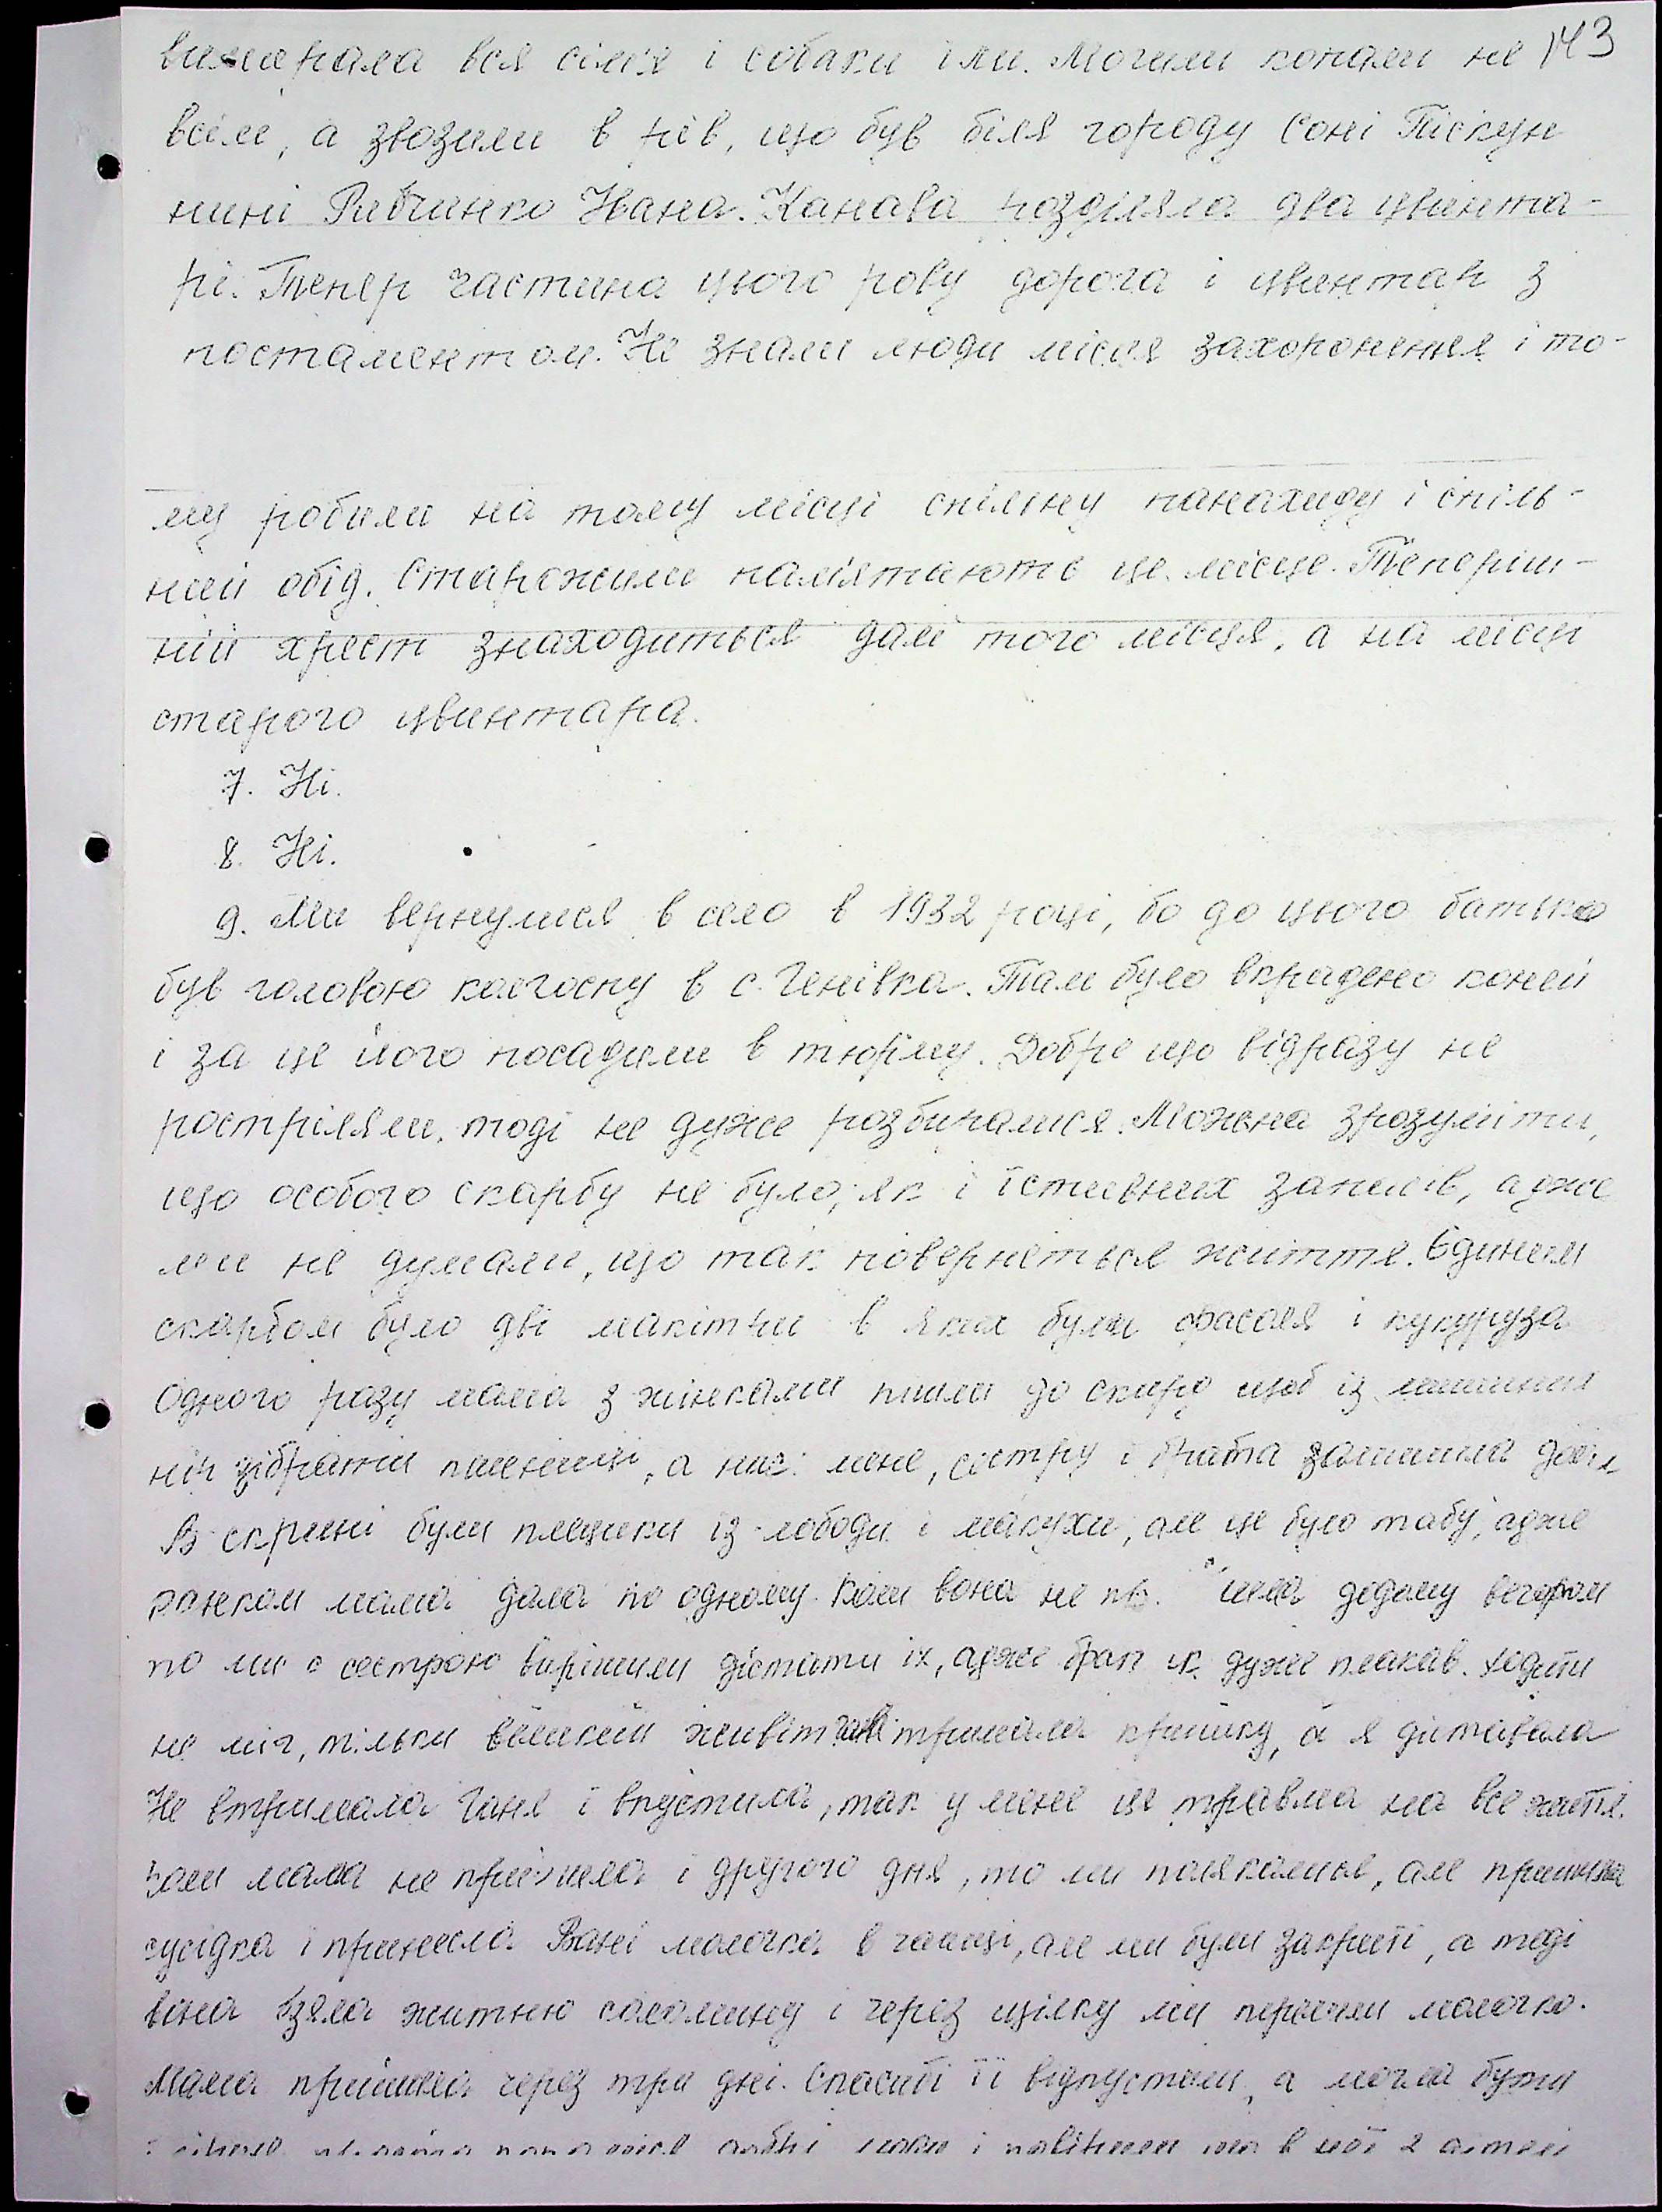 вимирала вся сім'я і собаки їли. Могили копали не 143
всім, а звозили в рів, що був біля городу Соні Піскун
нині Рибчинко Івана. Канава розділяла два цвинта-
рі. Тепер частина цього рову дорога і цвинтар з
постаментом. Не знали люди місця захоронення і то-
му робили на тому місці спільну панахиду і спіль-
ний обід. Старожили пам'ятають це місце. Теперіш-
ній хрест знаходиться далі того місця, а на місці
старого цвинтара.
7. Ні.
8. Ні.
9. Ми вернулися в село в 1932 році, бо до цього батько
був головою колгоспу в с. Генівка. Там було вкрадено коней
і за це його посадили в тюрму. Добре що відразу не
розстріляли, тоді не дуже розбиралися. Можна зрозуміти,
що особого скарбу не було, як і їстивних запасів, адже
ми не думали, що так повернеться життя. Єдиним
скарбом було дві макітри в яких були фасоля і кукуруза
Одного разу мама з жінками пішли до скирд щоб із
пшениці, а нас: мене, сестру і брата залишила дома
В скрині були плещики із лободи і макухи, але це було табу, адже
ранком мама дала по одному. Коли вона не додому вечером
то ми з сестрою вирішили дістати їх, адже братик дуже плакав. Ходити
не міг, тільки великий живіт. Ганя тримала кришку, а я діставала
Не втримала Ганя і впустила, так у мене ця травма на все життя.
Коли мама не прийшла і другого дня, то ми полякались, але прийшла
сусідка і принесла Вані молочка в чашці, але ми були закриті, а тоді
вона взяла житню соломину і через щілку ми молочко.
Мама прийшла через три дні. Спасибі її відпустили, а могла бути
і в неї 2 дітей